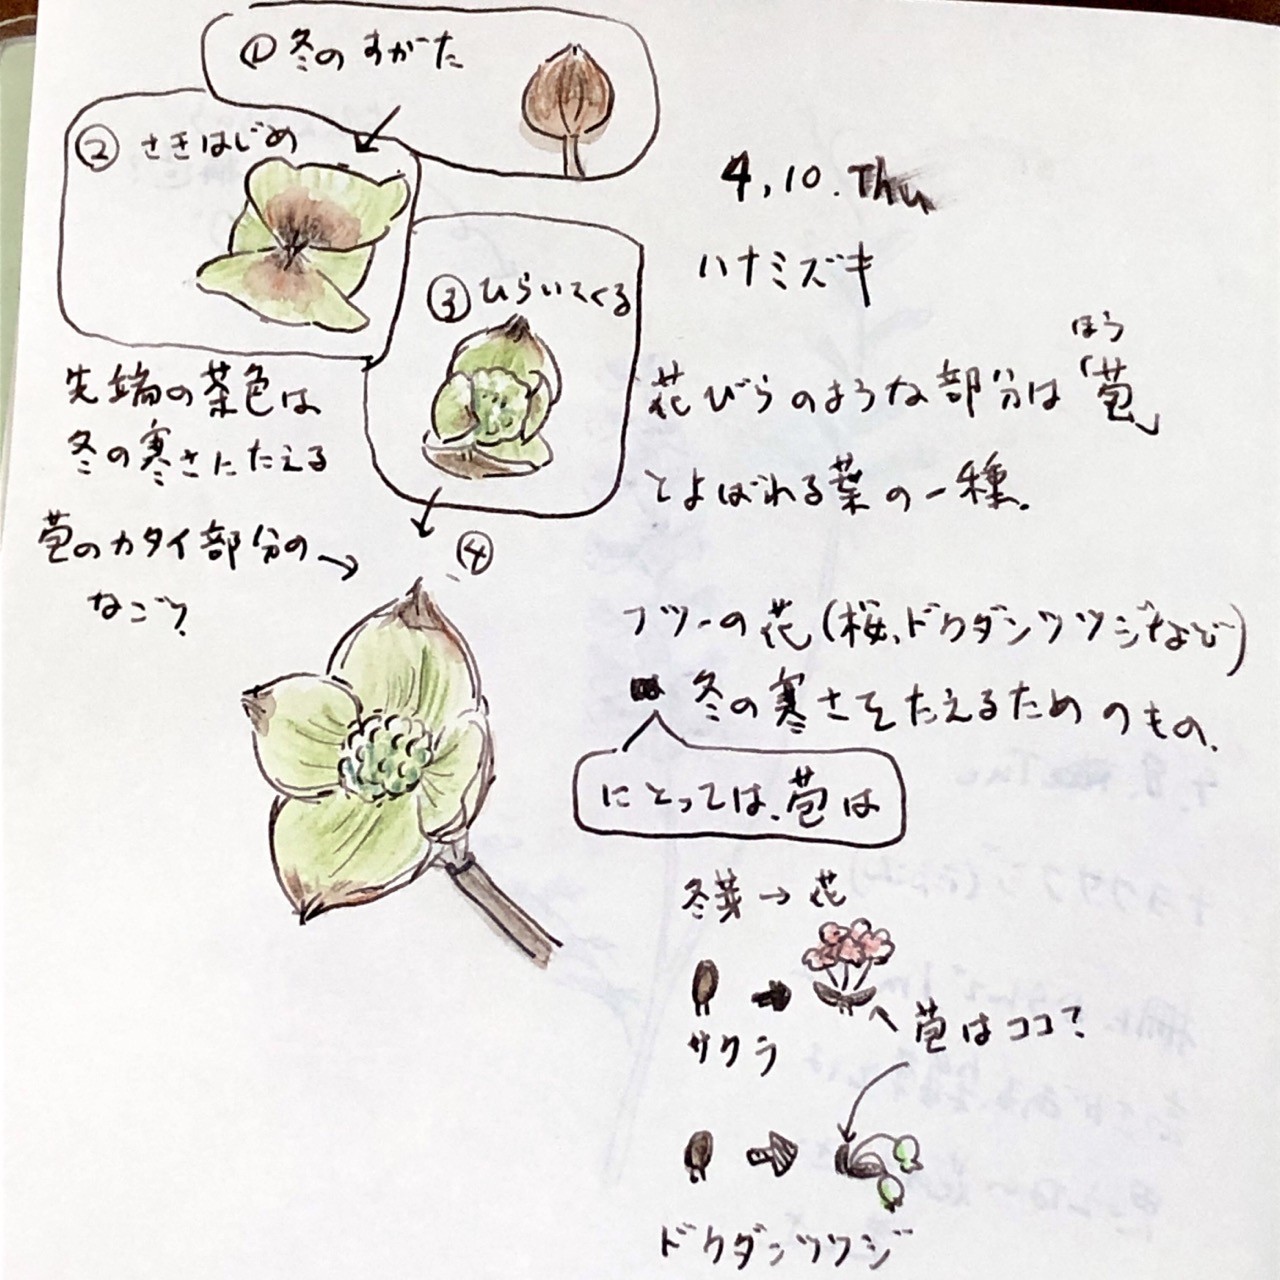 ① 冬のすがた
② さきはじめ
③ ひらいてくる
④
先端の茶色は
冬の寒さにたえる
苞のカタイ部分の→
なごり?
4,10.Thu
ハナミズキ
ほう
花びらのような部分は「苞」
とよばれる葉の一種.
フツーの花(桜、ドウダンツツジなど)
冬の寒さをたえるためのもの.
にとっては、苞は
冬芽→花
サクラ
苞はココ?
ドウダンツツジ